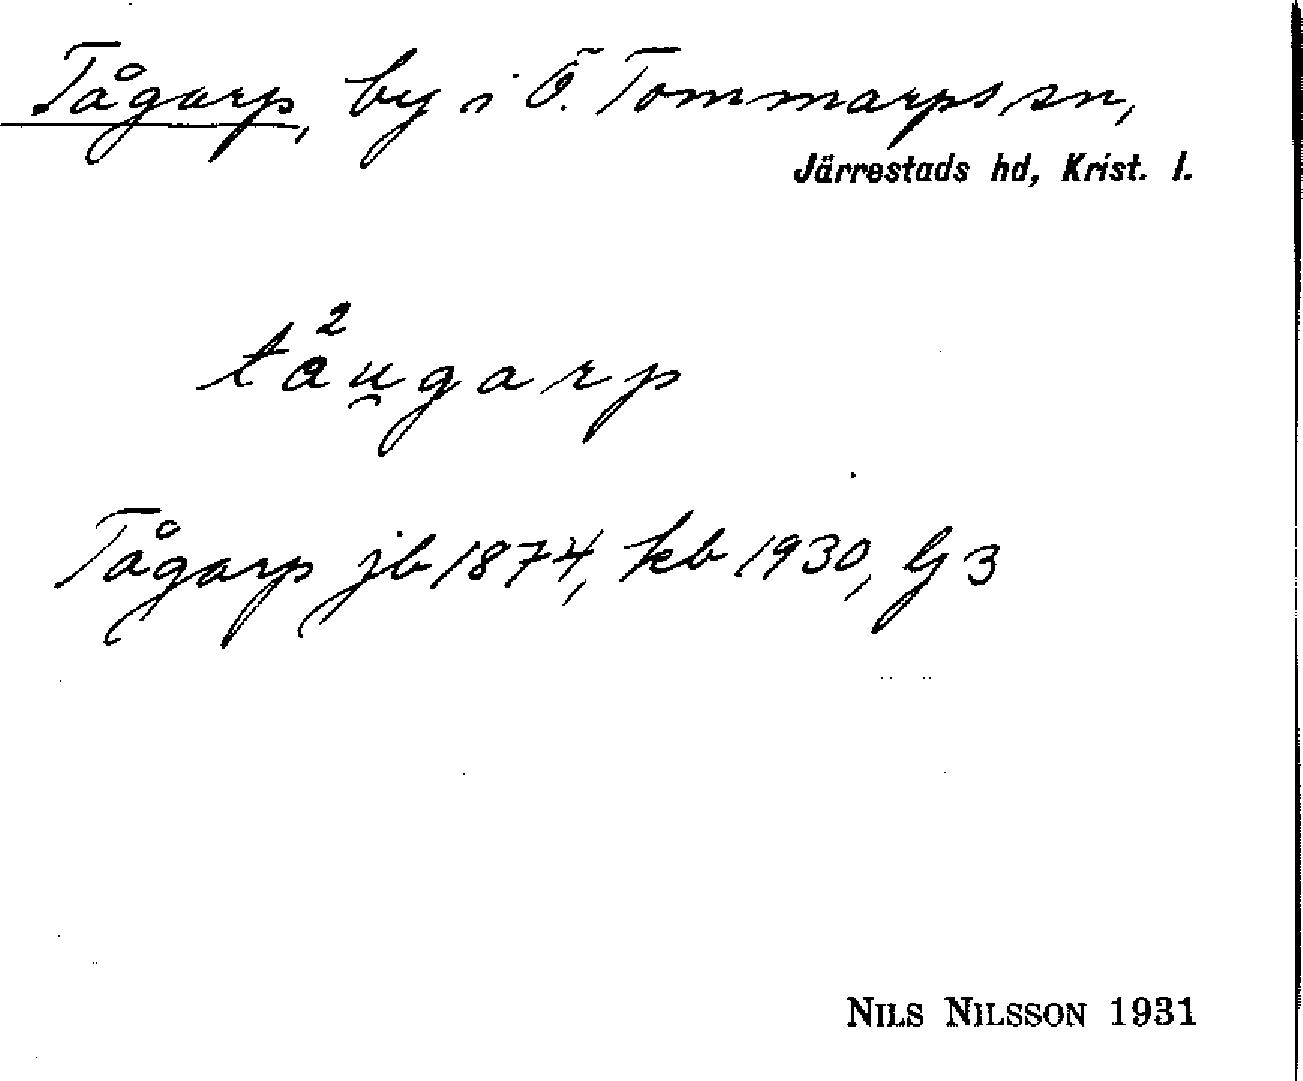 Tågarp, by i Ö. Tommarps sn,
Järrestads hd, Krist. l.
tå²u̯garp
Tågarp jb 1874, kb 1930, G 3
NILS NILSSON 1931